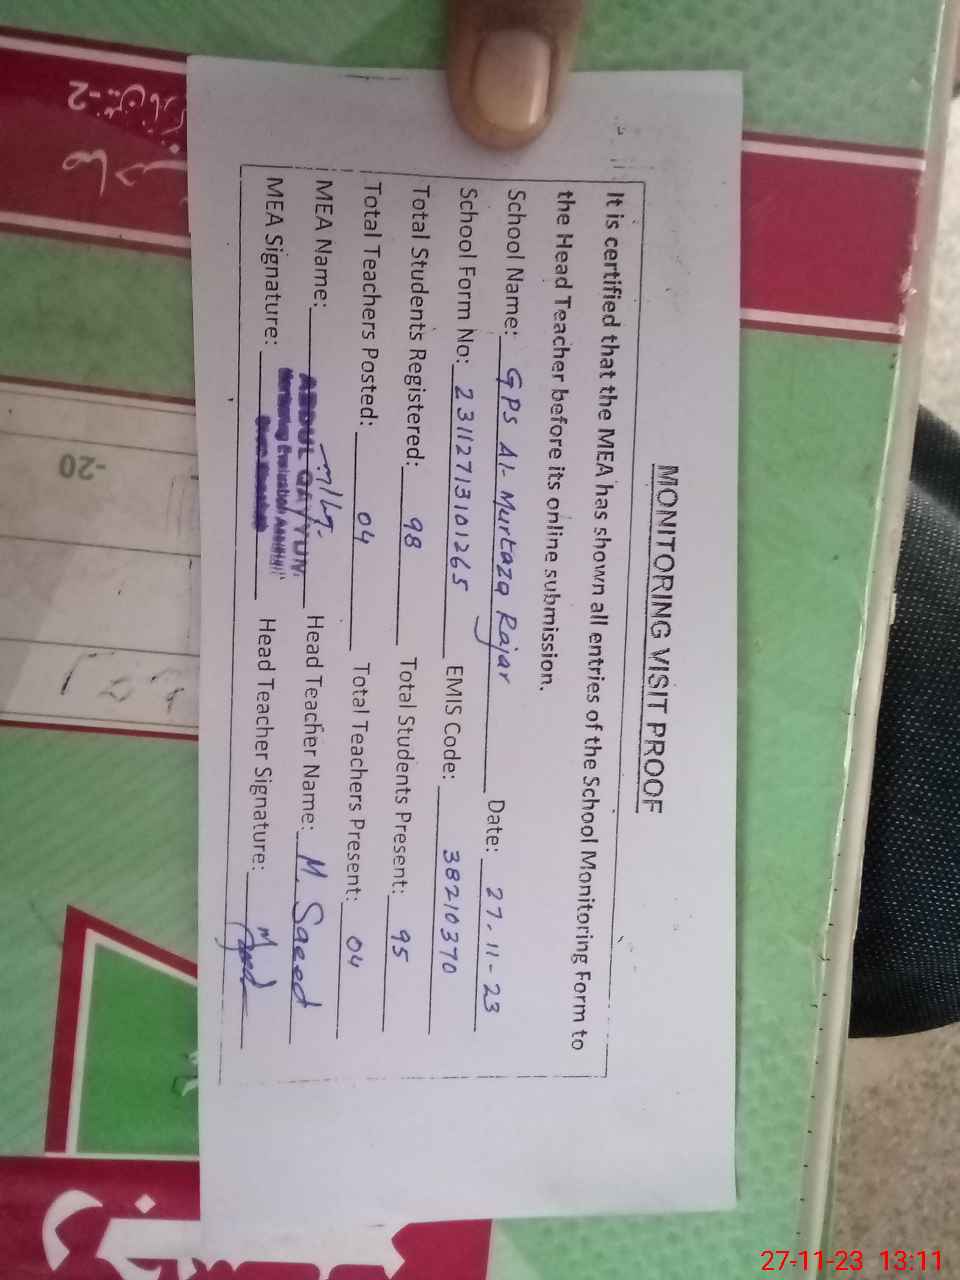 MONITORING VISIT PROOF
It is certified that the MEA has shown all entries of the School Monitoring Form to
the Head Teacher before its online submission.
School Name: GPS Al-Murtaza Rajar Date: 27-11-23
School Form No: 23112713101265 EMIS Code: 38210370
Total Students Registered: 98 Total Students Present: 95
Total Teachers Posted: 04 Total Teachers Present: 04
MEA Name: ABDUL QAYYUM Head Teacher Name: M. Saeed
Monitoring Evaluation Assistant
MEA Signature: Head Teacher Signature:
-2
-20
27-11-23 13:11